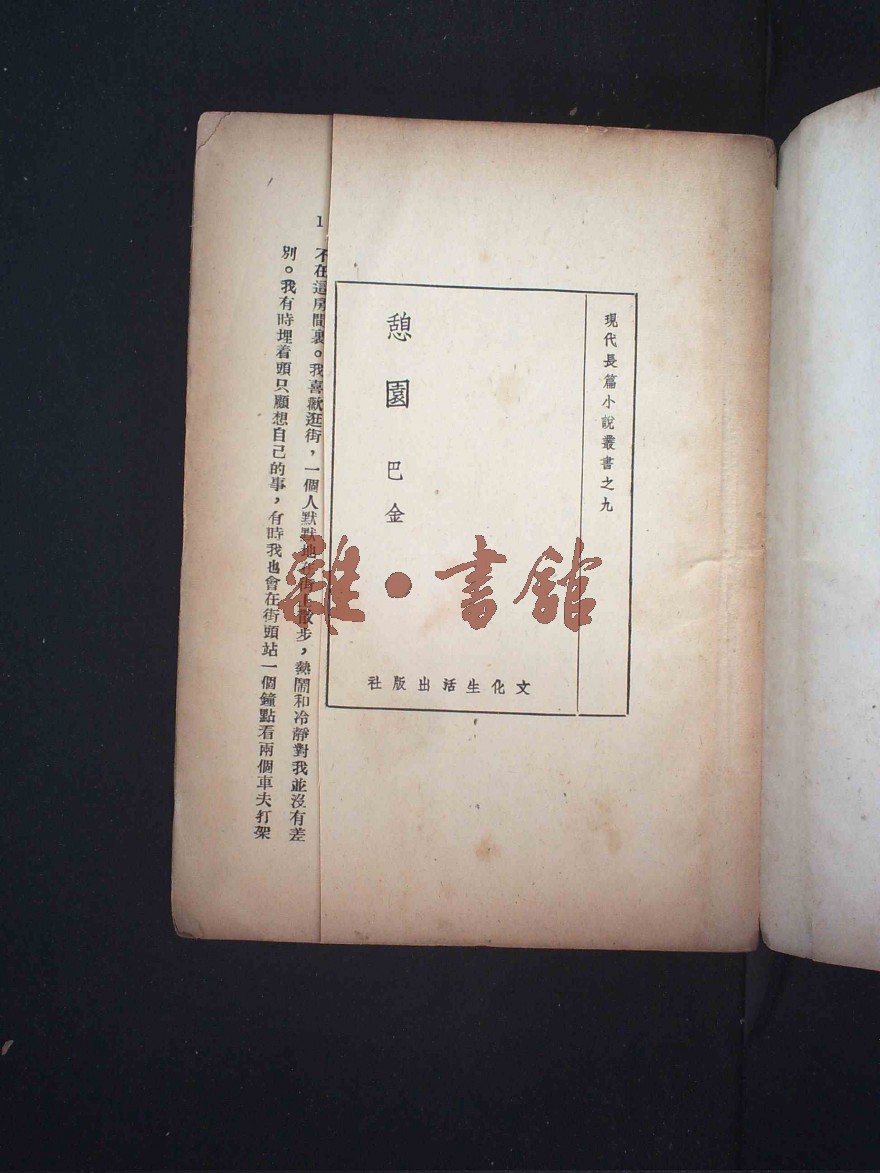 現代長篇小說叢書之九
憩園 巴金
文化生活出版社
1
不在這房間裏。我喜歡逛街，一個人默默地在街上散步，熱鬧和冷靜對我並沒有差
別。我有時埋着頭只顧想自己的事，有時我也會在街頭站一個鐘點看兩個車夫打架
雜·書舘